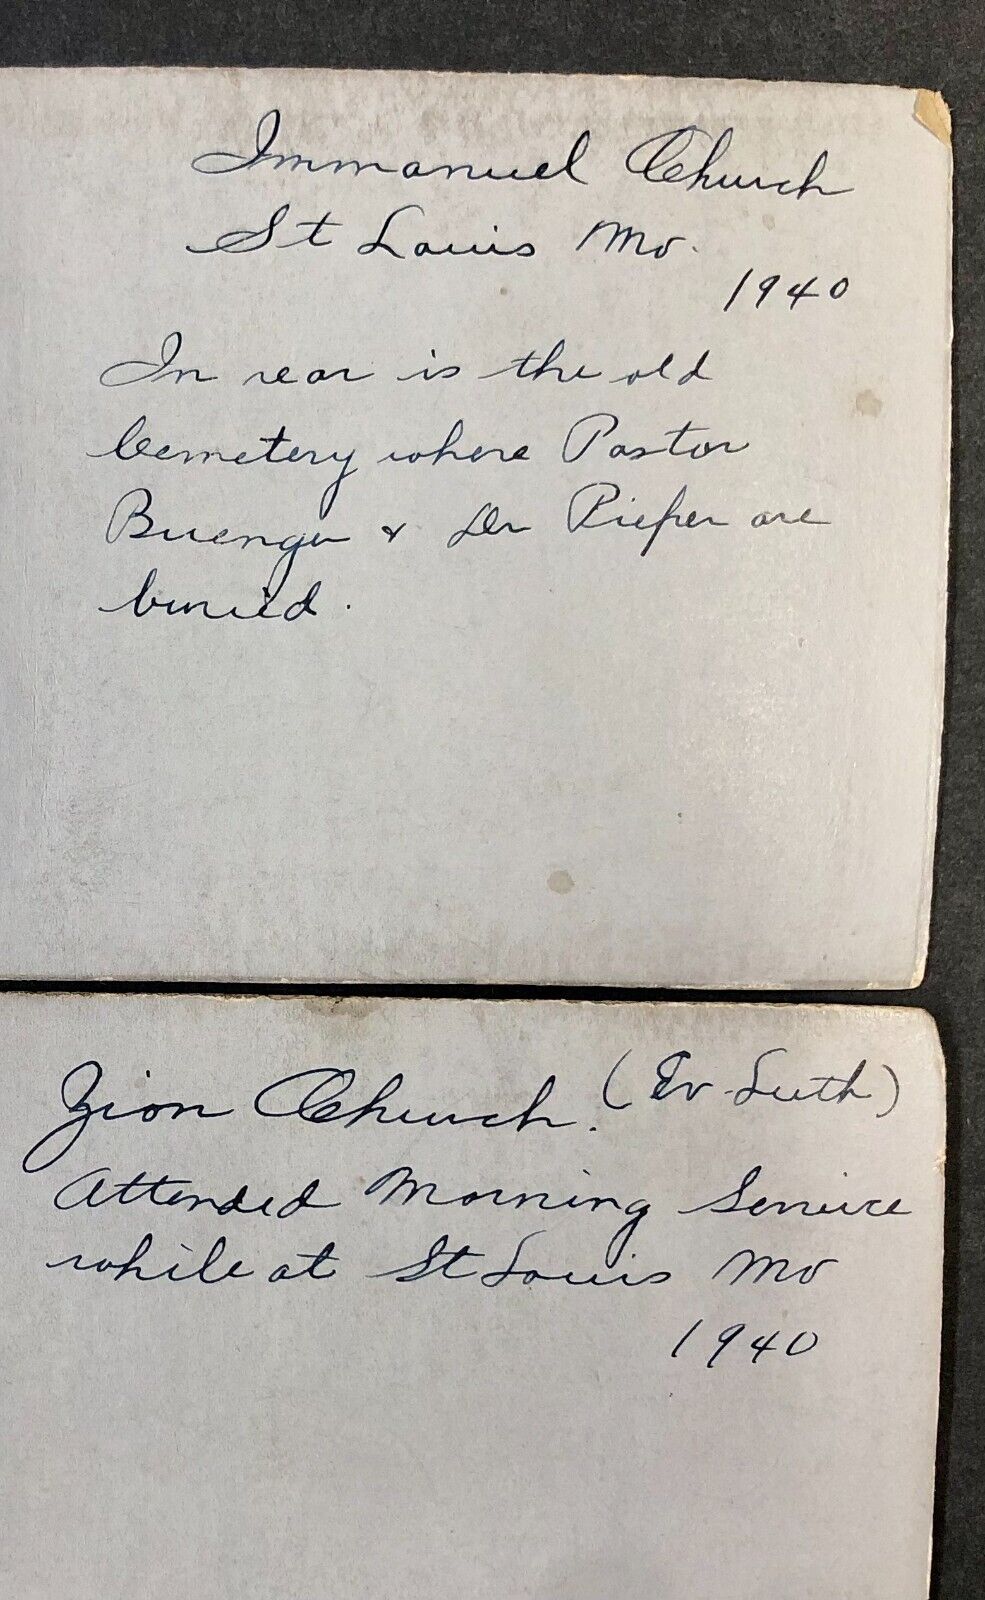 Immanuel Church
St Louis Mo.
1940
In rear is the old
Cemetery where Pastor
Buenger & Dr Pieper are
buried.
Zion Church. (Ev-Luth)
Attended Morning Service
while at St Louis Mo
1940